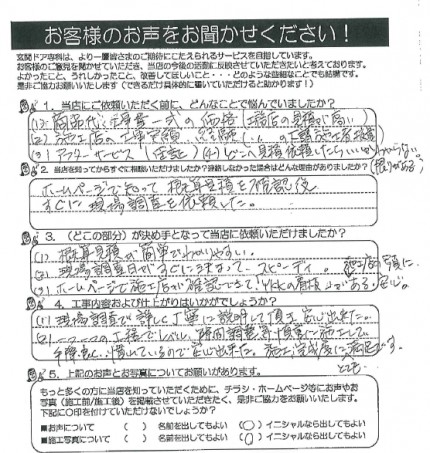 お客様のお声をお聞かせください!
玄関ドア専科は、より一層皆さまのご期待にこたえられるサービスを目指しています。
お客様のご意見を聞かせていただき、当店の今後の活動に反映させていただきたいと考えております。
よかったこと、うれしかったこと、改善してほしいこと・・・どのような些細なことでも結構です。
是非ご協力お願いいたします(できるだけ具体的に書いていただけると助かります!)
1. 当店にご依頼いただく前に、どんなことで悩んでいましたか?
(1) 商品代、工事費一式の価格
(2) 施工店の工事実績
(3) アフターサービス (保証) (4) どこへ見積依頼したらいいかわからない。
2. 当店を知ってからすぐに相談いただけましたか?連絡しなかった場合はどんな理由がありましたか?
ホームページで知って概算見積を確認後
すぐに現場調査を依頼した。
3. (どこの部分) が決め手となって当店に依頼いただけましたか?
(1) 概算見積が簡単でわかりやすい。
(2) 現場調査日がすぐに決まって、スピーディ。
(3) ホームページで施工店が確認できて、YKKの看板がある。安心。
4. 工事内容および仕上がりはいかがでしょうか?
(1) 現場調査が詳しく丁寧に説明して頂き安心出来た。
5. 上記のお声とお写真についてお願いがあります。
もっと多くの方に当店を知っていただくために、チラシ・ホームページ等にお声やお
写真(施工前/施工後)を掲載させていただきたく、是非ご協力をお願いいたします。
下記に○印を付けていただけないでしょうか?
■お声について ( ) 名前を出してもよい (○) イニシャルなら出してもよい
■施工写真について ( ) 名前を出してもよい (○) イニシャルなら出してもよい